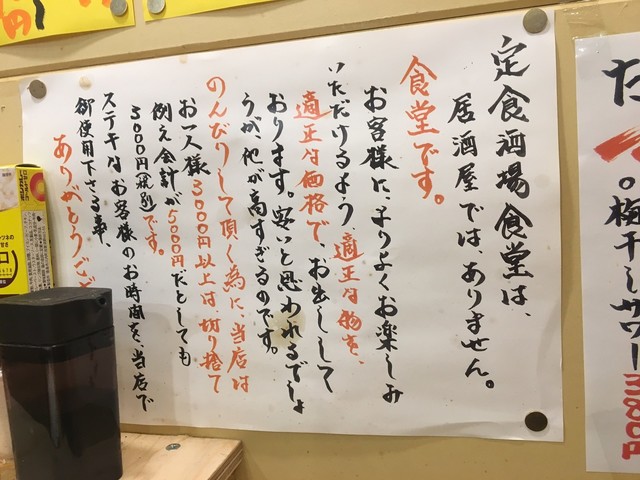 定食酒場食堂は、
居酒屋では、ありません。
食堂です。
お客様に、よりよくお楽しみ
いただけるよう、適正な物を、
適正な価格で、お出しして
おります。安いと思われるでしょ
うが、他が高すぎるのです。
のんびりして頂く為に、当店は
お一人様3000円以上は、切り捨て
例え会計が5000円だとしても
3000円(税別)です。
ステキなお客様のお時間を、当店で
御使用下さる事、
ありがとうござ
た
。梅干しサワー